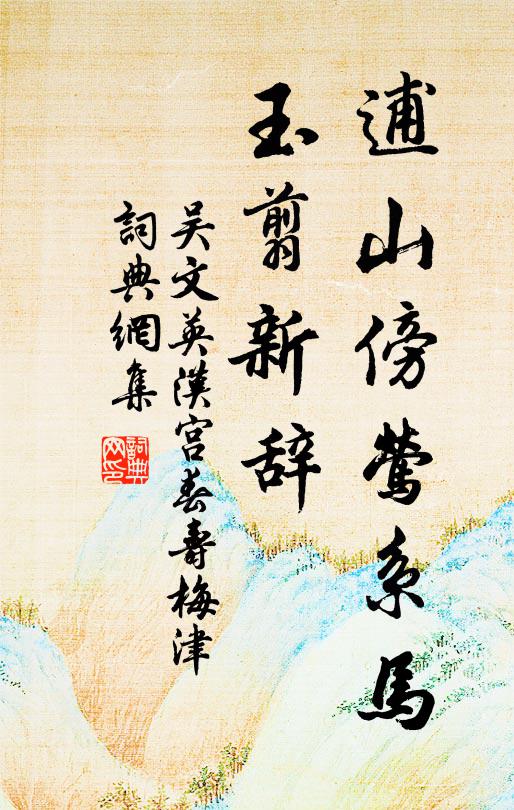 逋山傍鶯系馬
玉翦新辞
吴文英漢宮春壽梅津
詞典網集
詞典网印